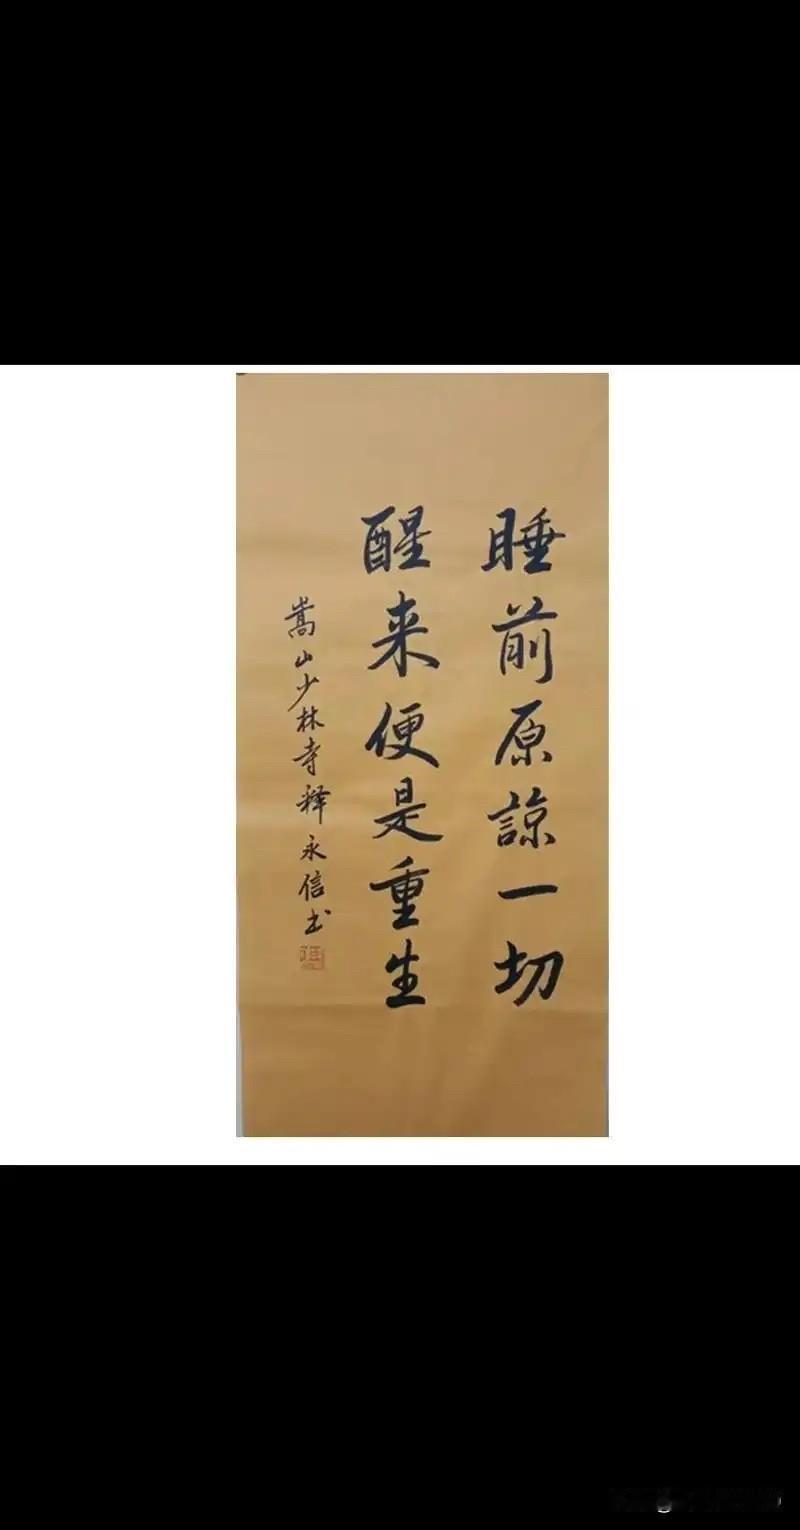 睡前原諒一切
醒来便是重生
嵩山少林寺释永信书